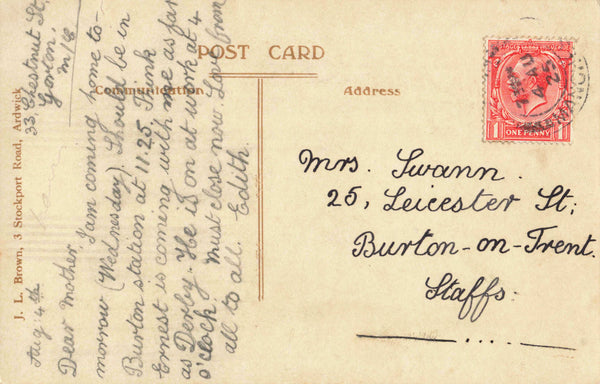 POST CARD
Communication.
Address
J. L. Brown, 3 Stockport Road, Ardwick
33, Chestnut St,
Gorton,
M/c
Aug 4th
Dear Mother,
I am coming home to-
morrow (Wednesday). Should be in
Burton station at 11.25. Think
Ernest is coming with me as far
as Derby. He is on at work at 4
o'clock. Must close now. Love from
all to all. Edith.
Mrs. Swann.
25, Leicester St;
Burton-on-Trent.
Staffs.
1 ONE PENNY 1
4 AU
25